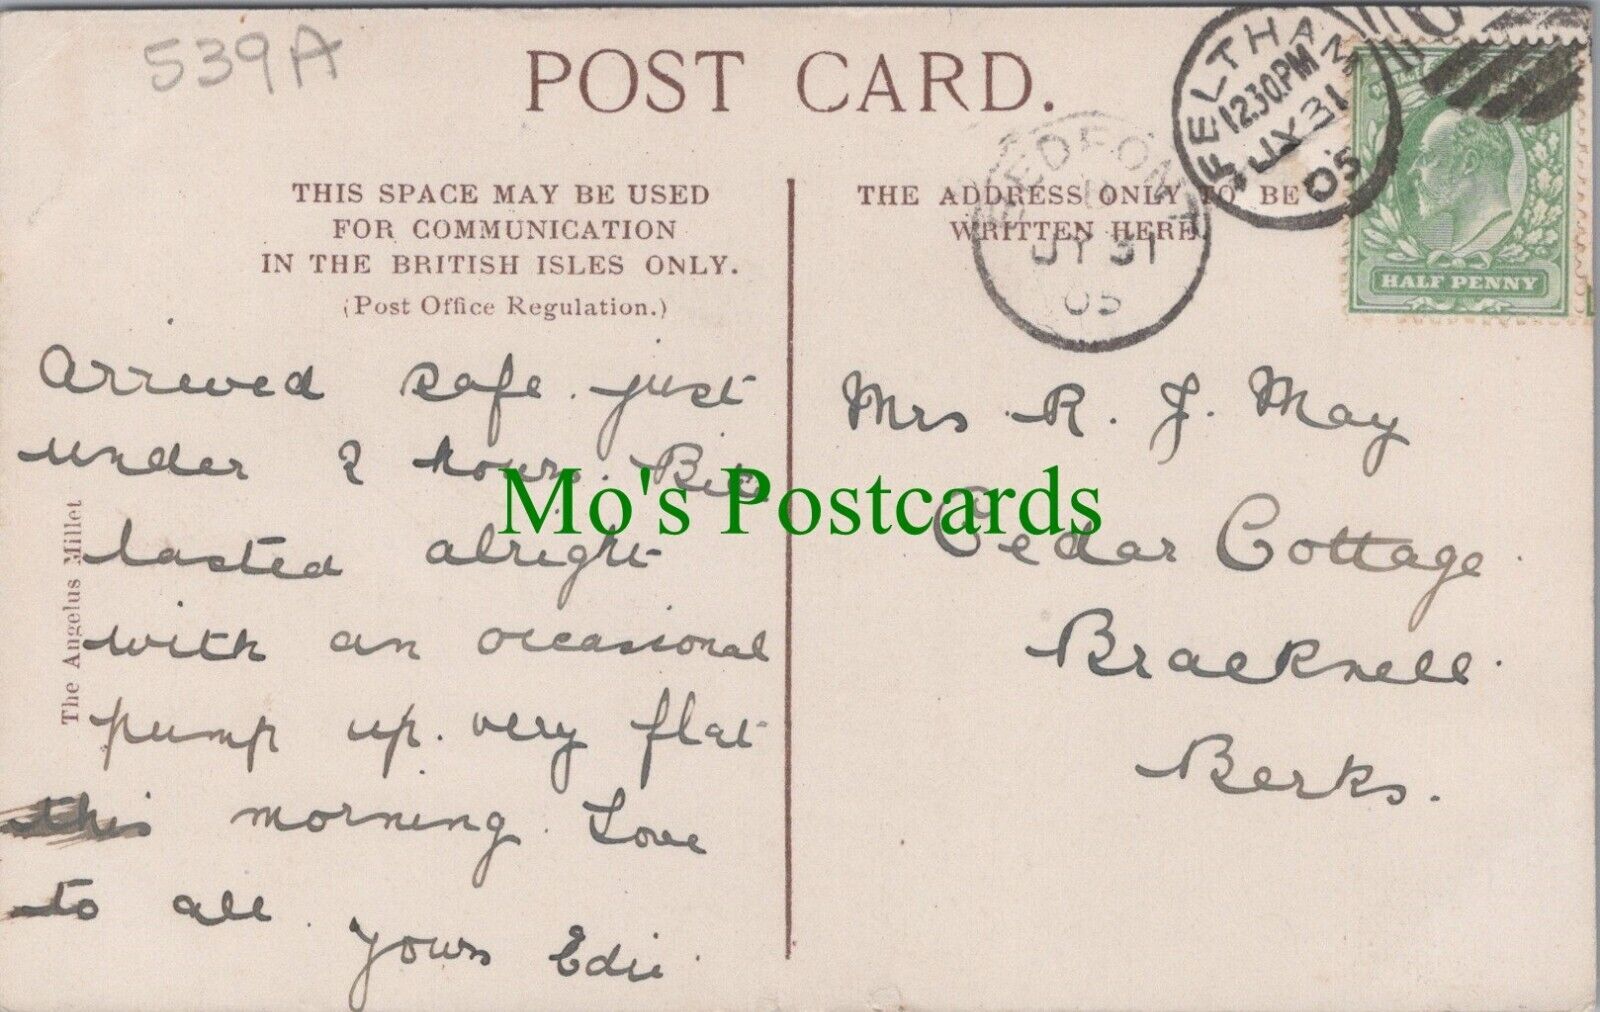 539A
POST CARD.
THIS SPACE MAY BE USED
FOR COMMUNICATION
IN THE BRITISH ISLES ONLY.
(Post Office Regulation.)
THE ADDRESS ONLY TO BE
WRITTEN HERE
BEDFONT
JY 31
05
FELTHAM
12.30.PM
JY 31
05
HALF PENNY
Arrived safe. just
under 2 hours.
lasted alright
with an occasional
pump up. very flat
this morning. Love
to all.
Yours Edie
The Angelus Millet
Mrs. R. J. May
Cedar Cottage.
Bracknell.
Berks.
Mo's Postcards